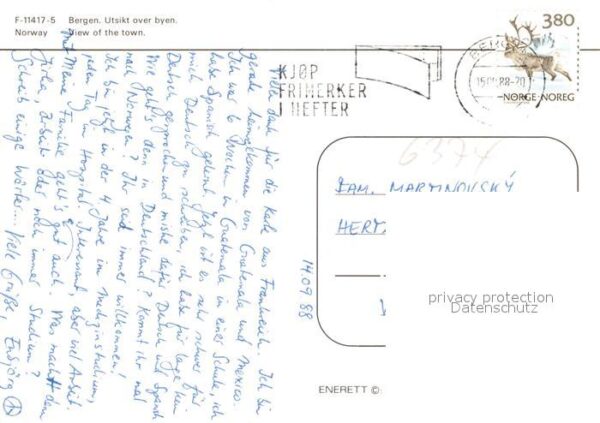 F-11417-5 Bergen. Utsikt over byen.
Norway View of the town.
KJØP
FRIMERKER
I HEFTER
BERG
15.09.88-20
380
NORGE·NOREG
6374
FAM. MARTINOVSKÝ
HERT
14.09.88
privacy protection
Datenschutz
ENERETT ©
Vielen Dank für die Karte aus Frankreich. Ich bin
gerade heimgekommen von Guatemala und Mexico.
Ich war 6 Wochen in Guatemala in einer Schule, ich
habe Spanisch gelernt. Jetzt ist es sehr schwer für
mich Deutsch zu schreiben, ich habe für lange kein
Deutsch gesprochen und mische dafür Deutsch und Spanisch
Wie geht's denn in Deutschland? Kommt ihr mal
nach Norwegen? Ihr seid immer willkommen!
Ich bin jetzt in der 4 Jahre im Medizinstudium,
jeden Tag im Hospital. Interessant, aber viel Arbeit.
Mit Meine Familie geht's gut auch. Was macht denn
Jirka, Arbeit oder noch immer Studium?
Schreib einige Wörter... Viele Grüße,